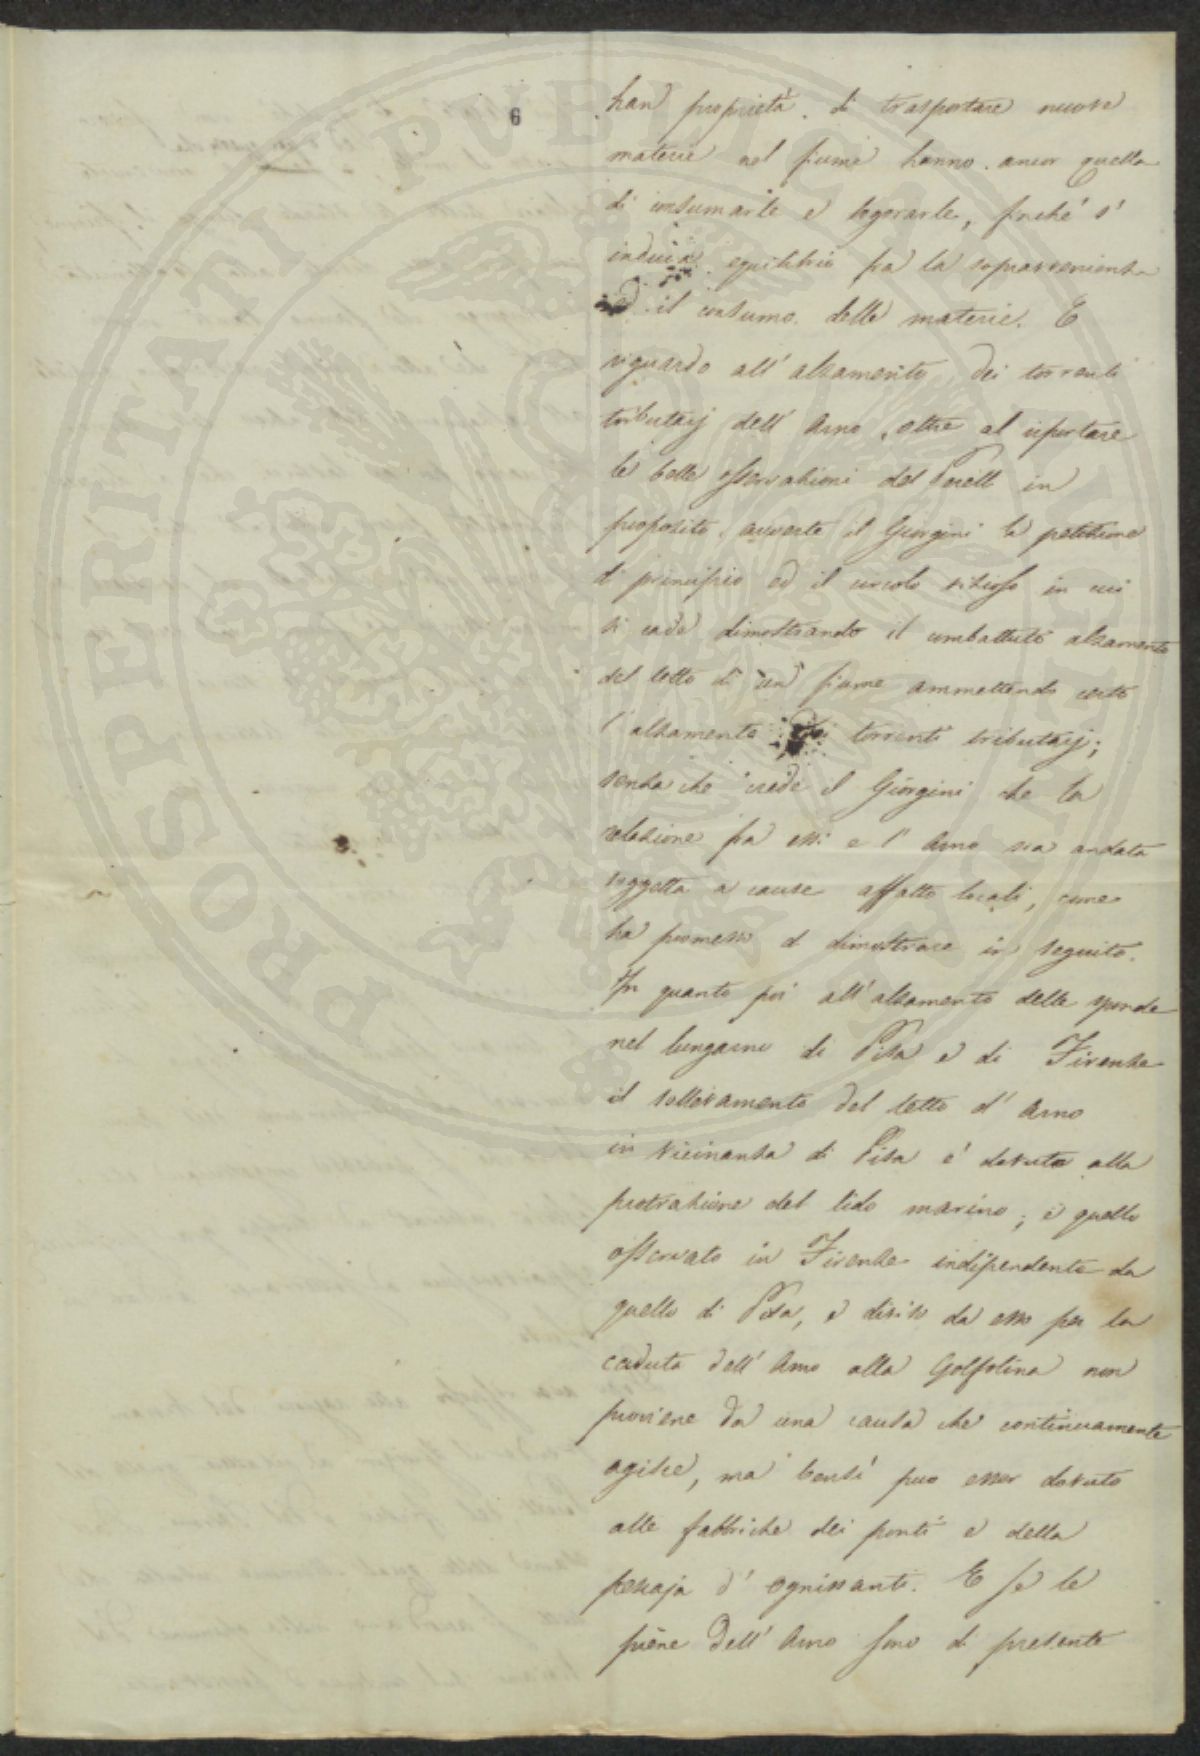 6
han proprietà di trasportare nuove
materie nel fiume hanno ancor quella
di consumarle e logorarle, finché s'
induca equilibrio fra la sopravvenienza
ed il consumo delle materie. E
riguardo all'alzamento dei torrenti
tributarj dell'Arno, oltre al riportare
le belle osservazioni del Perelli in
proposito, avverte il Giorgini la petizione
di principio ed il circolo vizioso in cui
si cade dimostrando il combattuto alzamento
del letto di un fiume ammettendo certo
l'alzamento dei torrenti tributarj;
senza che crede il Giorgini che la
relazione fra essi e l'Arno sia andata
soggetta a cause affatto locali, come
ha promesso di dimostrare in seguito.
In quanto poi all'alzamento delle sponde
nel lungarno di Pisa e di Firenze
il sollevamento del letto d'Arno
in vicinanza di Pisa è dovuto alla
protrazione del lido marino; e quello
osservato in Firenze indipendente da
quello di Pisa, e diviso da esso per la
caduta dell'Arno alla Golfolina non
proviene da una causa che continuamente
agisce, ma bensì puo esser dovuto
alle fabbriche dei ponti e della
pescaja d'Ognissanti. E se le
piene dell'Arno sono di presente
PROSPERITATI PUBLICAE AUGENDAE